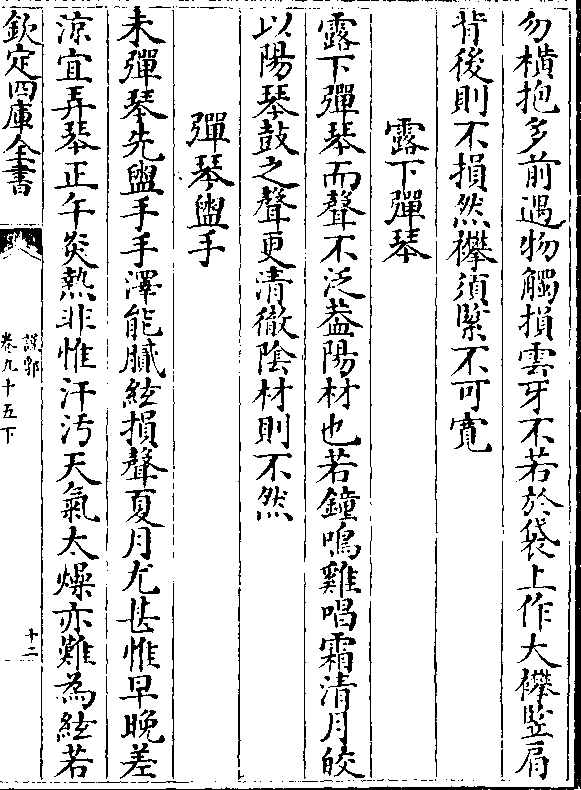 勿横抱多前遇物觸損雲牙不若於袋上作大襻豎肩
背後則不損然襻須緊不可寛
露下彈琴
露下彈琴而聲不泛葢陽材也若鐘鳴雞唱霜清月皎
以陽琴鼓之聲更清徹陰材則不然
彈琴盥手
未彈琴先盥手手澤能膩絃損聲夏月尤甚惟早晚差
涼宜弄琴正午炎熱非惟汗汚天氣太燥亦難為絃若
欽定四庫全書
說郛
卷九十五下
十二